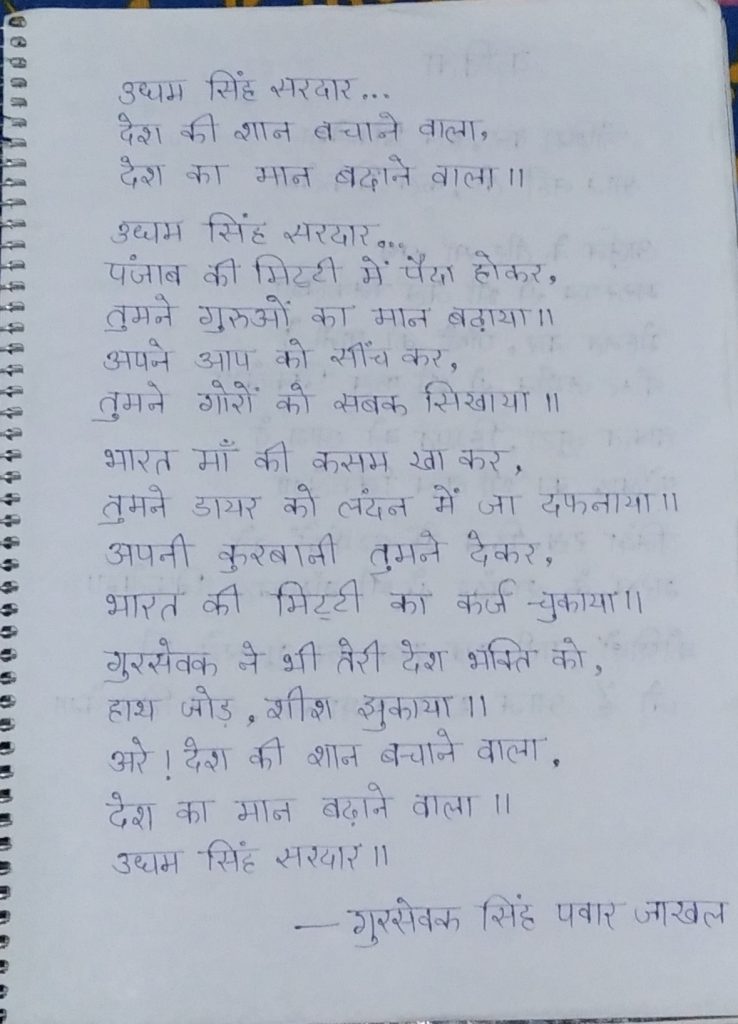 उधम सिंह सरदार...
देश की शान बचाने वाला,
देश का मान बढाने वाला॥
उधम सिंह सरदार...
पंजाब की मिट्टी मे पैदा होकर,
तुमने गुरुओं का मान बढ़ाया॥
अपने आप को सींच कर,
तुमने गोरों को सबक सिखाया॥
भारत माँ की कसम खा कर,
तुमने डायर को लंदन में जा दफनाया॥
अपनी कुरबानी तुमने देकर,
भारत की मिट्टी का कर्ज चुकाया॥
गुरसेवक ने भी तेरी देश भक्ति को,
हाथ जोड़, शीश झुकाया॥
अरे! देश की शान बचाने वाला,
देश का मान बढ़ाने वाला॥
उधम सिंह सरदार॥
— गुरसेवक सिंह पवार जाखल